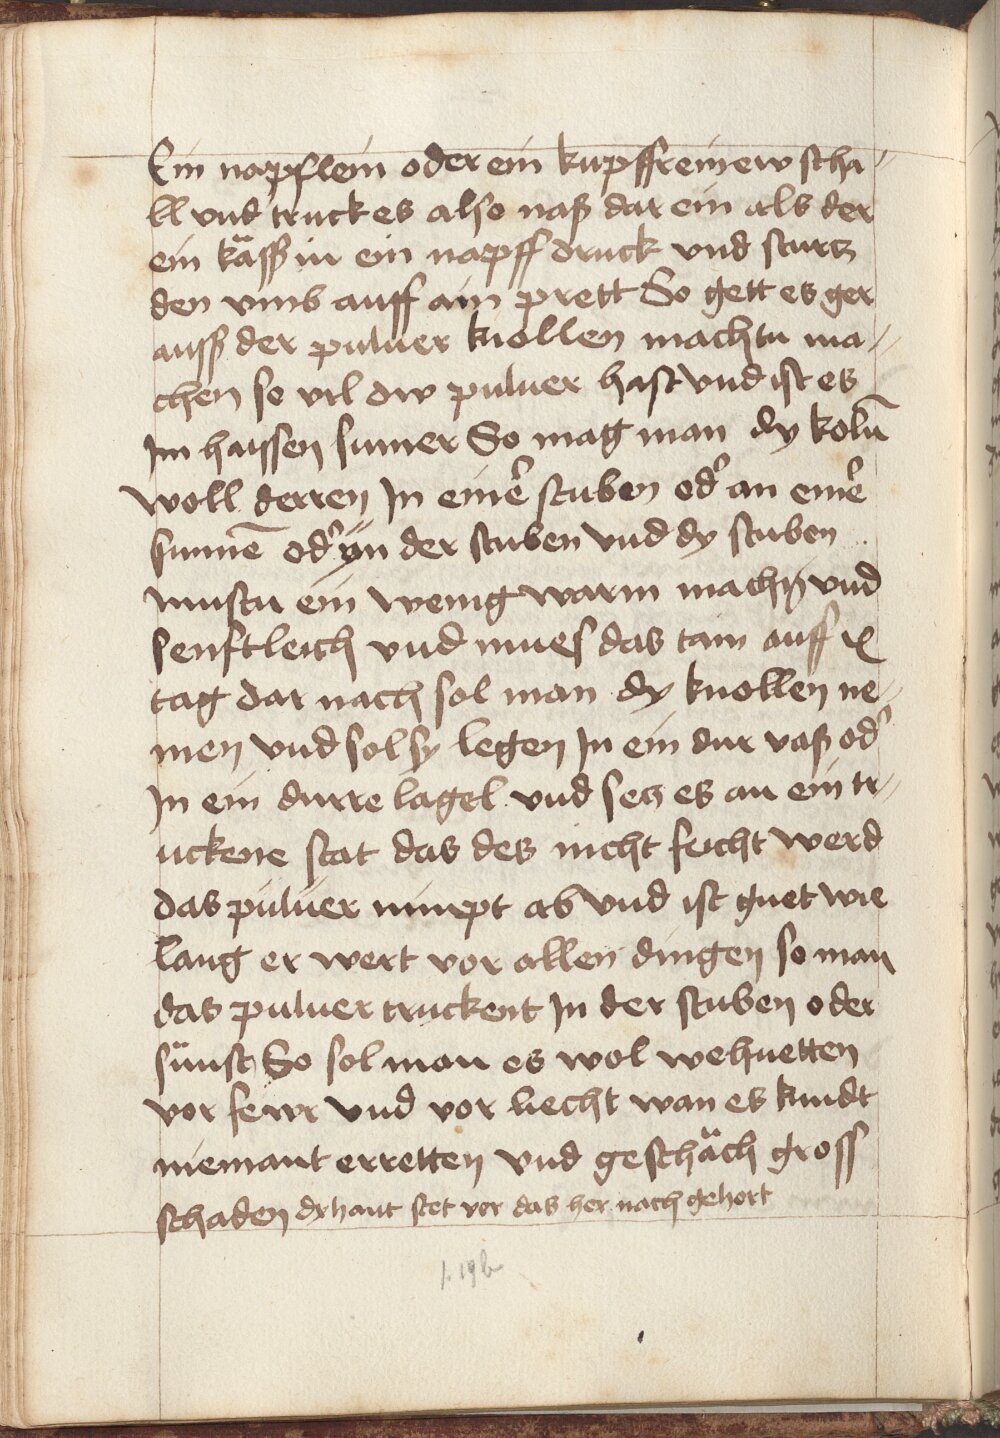 Ein napflein oder ein kupffreinew scha-
ll vnd truck es also naß dar ein als der
ein käsß in ein napff druck vnd sturtz
den vmb auff ain prett So gett es ger
ausß der puluer knollen machtu ma-
chen so vil dw puluer hast vnd ist es
Im haissen sumer So mag man dy kolñ
woll derren In einē stuben od' an einē
sunnē od' yn der stuben vnd dy stuben
mustu ein wenig warm machñ vnd
senftleich vnd mues das tain auff ix
tag dar nach sol man dy knollen ne-
men vnd sol sy legen In ein dur vaß od'
In ein durre lagel vnd setz es an ein tr-
uckene stat das des nicht feicht werd
das puluer nimpt ab vnd ist guet wie
lang er wert vor allen dingen so man
das puluer truckent In der stuben oder
sünst So sol man es wol wehuetten
vor fewr vnd vor liecht wan es kundt
niemant erretten vnd geschäch gross
schaden dy haut stet vor das her nach gehort
f. 19b